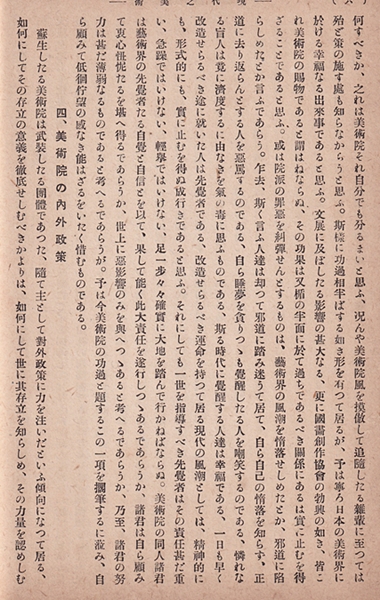 現代之美術
(六)
何すべきか、之れは美術院それ自分でも分るまいと思ふ、況んや美術院風を摸倣して追隨したる雜輩に至つては
殆ど策の施す處も知らなからうと思ふ。斯樣に功過相半ばする如き形を有つて居るが、予は寧ろ日本の美術界に
於ける幸福なる出來事であると思ふ。文展に及ぼしたる影響の甚大なる、更に國畫創作協會の勃興の如き、皆こ
れ美術院の賜物であると謂はねならぬ、その功果は又楯の半面に於て過ちであるべき關係にあるは實に止むを得
ざることであると思ふ。或は院派の罪惡を糾彈せんとするものは、藝術界の風潮を惰落せしめたとか、邪道に陷
らしめたとか言ふであらう。乍去、斯く言ふ人達は却つて邪道に踏み迷うて居て、自ら自己の惰落を知らず、正
道に去り返らんとする人を惡罵するのである、自ら睡夢を貪りつゝも覺醒したる人を嘲笑するのである、憐れな
る盲人は竟に濟度するに由なきを氣の毒に思ふものである、斯る時代に覺醒する人達は幸福である、一日も早く
改造せらるべき途に就いた人は先覺者である、改造せらるべき運命を持つて居る現代の風潮としては、精神的に
も、形式的にも、實に止むを得ぬ成行きであると思ふ。それにしても一世を指導すべき先覺者はその責任甚だ重
い、急躁ではいけない、輕擧ではいけない、足一步々々確實に大地を踏んで行かねばならぬ。美術院の同人諸君
は藝術界の先覺者たる自覺と自信とを以て、果して能く此大責任を遂行しつゝあるであらうか、諸君は自ら顧み
て衷心忸怩たるを堪へ得るであらうか、世上に惡影響のみを與へつゝあると考へるであらうか、乃至、諸君の努
力は甚だ薄弱なるものであると考へるであらうが。予は今美術院の功過と題するこの一項を擱筆するに莅み、自
ら顧みて低徊佇望の感なき能はざるをいたく惜むものである。
四、美術院の內外政策
蘇生したる美術院は武裝したる團體であつた、隨て主として對外政策に力を注いだといふ傾向になつて居る、
如何にしてその存立の意義を徹底せしむべきかよりは、如何にして世に其存立を知らしめ、その力量を認めしむ